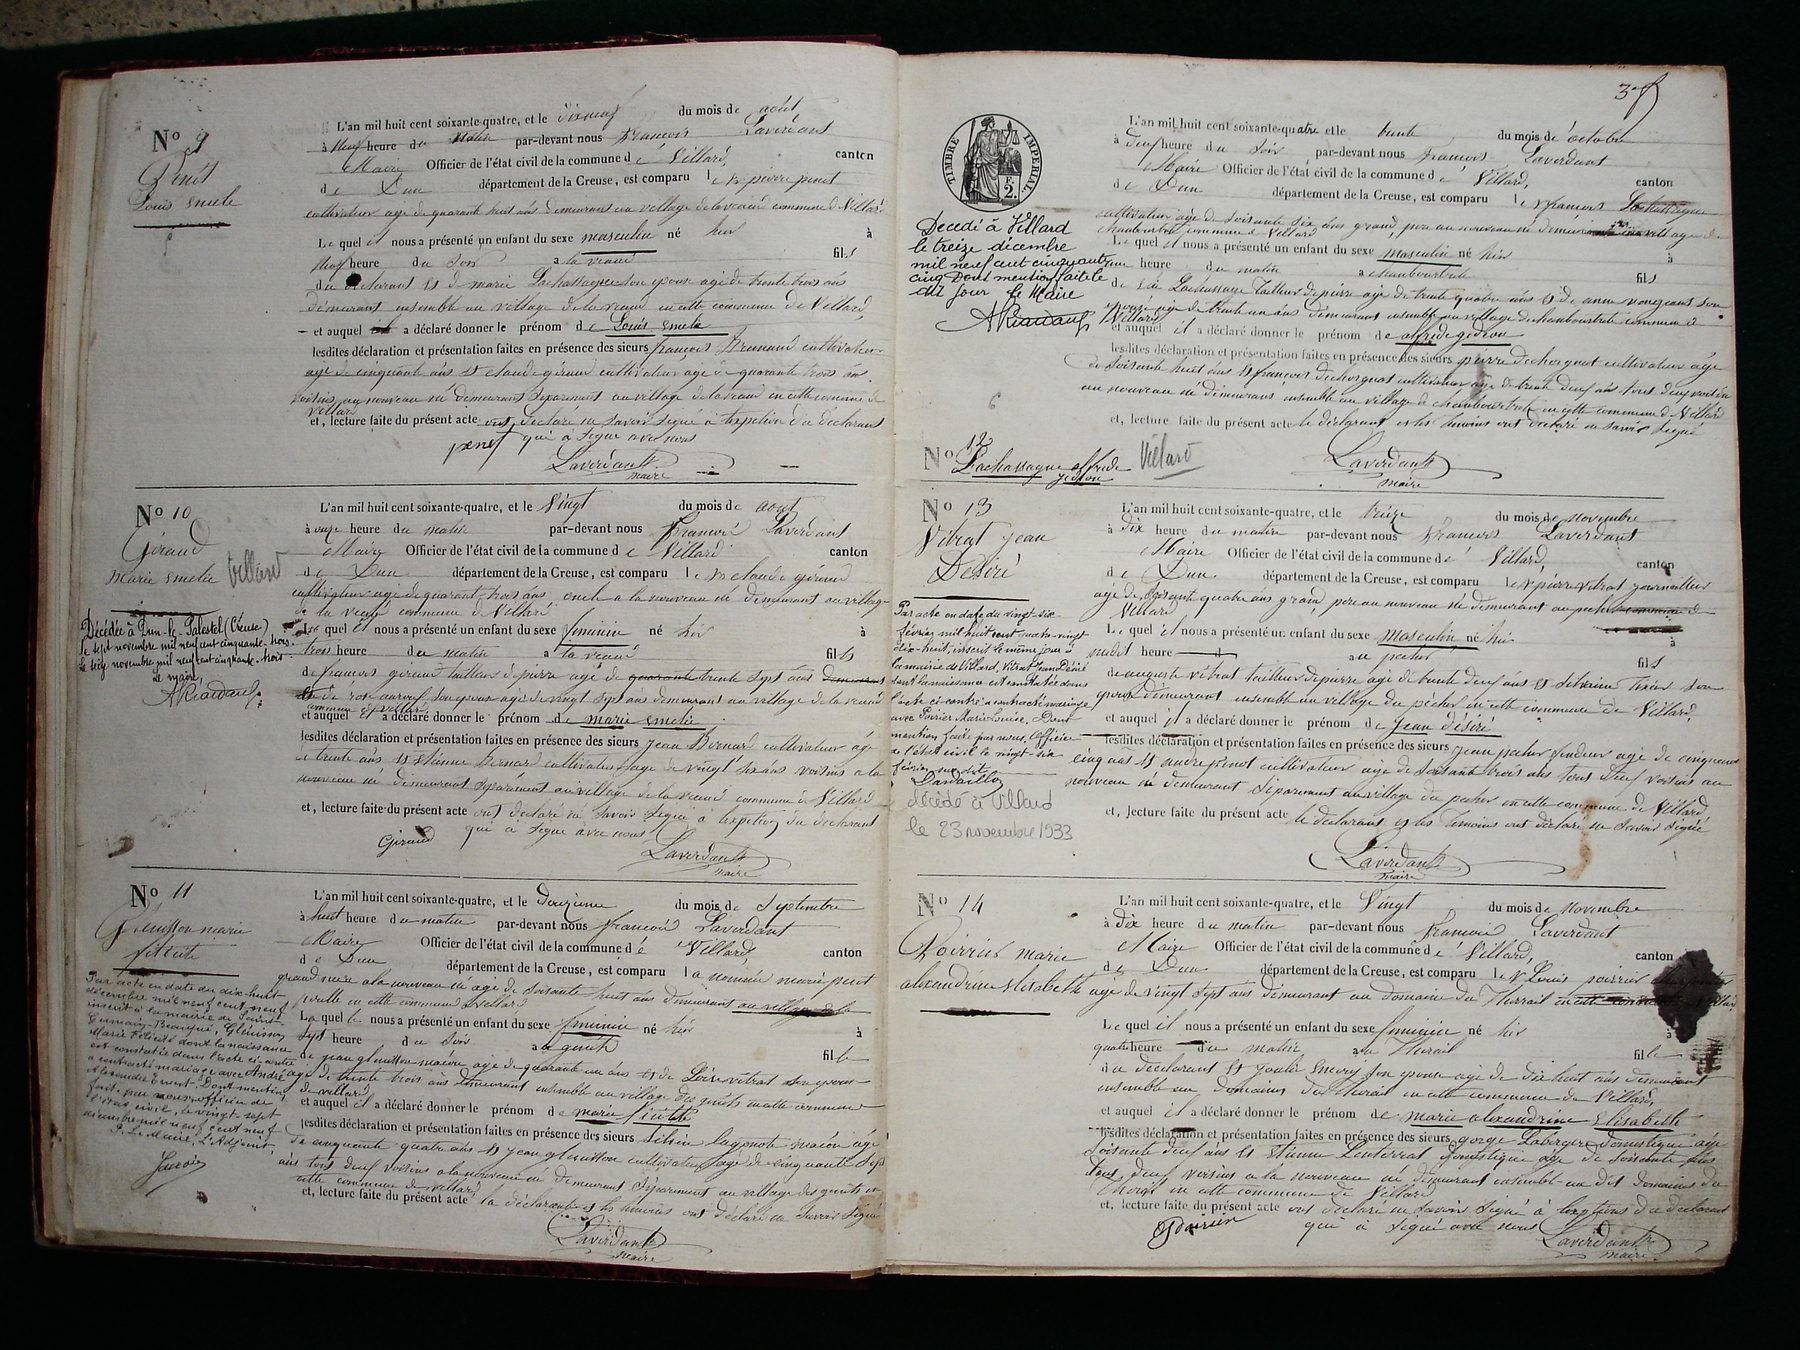 No 9
Penét
Louis emele
L'an mil huit cent soixante-quatre, et le dixneuf du mois de août
à Neuf heure du Matin par-devant nous francois Laverdant
Maire Officier de l'état civil de la commune d é Villard, canton
de Dun département de la Creuse, est comparu le sr pierre penet
cultivateur age de quarante huit ans demeurant au village de laveaud commune de Villard
Le quel il nous a présenté un enfant du sexe masculin né hier à
Neuf heure du Soir a la veaud fils
du declarant et de marie Lachassagne son epouse age de trente trois ans
demeurant ensemble au village de la veaud en cette commune de Villard
et auquel il a déclaré donner le prénom de Louis emele
lesdites déclaration et présentation faites en présence des sieurs françois Brunaud cultivateur
age de cinquante ans et claude giraud cultivateur age de quarante trois ans
voisins au nouveau né demeurant separement au village de laveaud en cette commune de
Villard
et, lecture faite du présent acte ont declaré ne savoir signe a lexeption du declarant
qui a signe avec nous
penet
Laverdant
maire
No 10
Giraud
marie emelie
Villard
Décédée à Dun-le-Palestel (Creuse)
le sept novembre mil neuf cent cinquante-trois.
Le seize novembre mil neuf cent cinquante-trois
Le maire,
L'an mil huit cent soixante-quatre, et le Vingt du mois de aout
à onze heure du matin par-devant nous francois Laverdant
Maire Officier de l'état civil de la commune d e Villard canton
de Dun département de la Creuse, est comparu le sr claude giraud
cultivateur age de quarant trois ans oncle a la nouveau né demeurant au village
de la veaud commune de Villard
Le quel il nous a présenté un enfant du sexe feminin né hier à
trois heure du matin a la veaud fille
de francois giraud tailleur de pierre age de quarante trente sept ans demeurant
son epouse age de vingt sept ans demeurant au village de la veaud
commune de villard
et auquel il a déclaré donner le prénom de marie emelie
lesdites déclaration et présentation faites en présence des sieurs jean Bernard cultivateur age
de trente ans et etienne bernard cultivateur age de vingt six ans voisins a la
nouveau né demeurant separement au village de la veaud commune de Villard
et, lecture faite du présent acte ont declaré né savoir signe a lexeption du declarant
qui a signe avec nous
Giraud
Laverdant
maire
No 11
Glenisson marie
felicité
Par acte en date du dix-huit
décembre mil neuf cent neuf
inscrit à la mairie de Saint-
Germain-Beaupré, Glénisson
Marie Félicité dont la naissance
est constatée dans l'acte ci-contre
a contracté mariage avec André
Alexandre Ernest. Dont mention
faite par nous, officier de
l'état civil, le vingt-sept
décembre mil neuf cent neuf
P. Le Maire, L'Adjoint,
L'an mil huit cent soixante-quatre, et le Douzieme du mois de Septembre
à huit heure du matin par-devant nous francois Laverdant
Maire Officier de l'état civil de la commune d é Villard, canton
de Dun département de la Creuse, est comparu la nommée marie penet
grand mere a la nouveau né age de soisante huit ans demeurant au village de la
en cette commune de villard
La quel le nous a présenté un enfant du sexe feminin né hier à
Sept heure du Soir a fille
de jean glenisson macon age de quarante un ans et de vitrat son epouse
age de trente trois ans demeurant ensemble au village des en cette commune
de villard
et auquel il a déclaré donner le prénom de marie felicité
lesdites déclaration et présentation faites en présence des sieurs macon age
de cinquante quatre ans et jean glenisson cultivateur age de cinquante sept
ans tous deux voisins a la nouveau né demeurant séparement au village des en
cette commune de villard
et, lecture faite du présent acte la declarante et les temoins ont declaré ne savoir signé
Laverdant
maire
TIMBRE IMPERIAL
F. 2.
Decedé à Villard
le treize décembre
mil neuf cent cinquante
cinq dont mention faite le
dit jour le Maire
L'an mil huit cent soixante-quatre et le trente du mois de octobre
à deux heure du Soir par-devant nous francois Laverdant
Maire Officier de l'état civil de la commune d é Villard, canton
de Dun département de la Creuse, est comparu le sr francois Lachassagne
cultivateur age de soisante dix ans grand pere au nouveau né demeurant au village de
commune de Villard
Le quel il nous a présenté un enfant du sexe masculin né hier à
une heure du matin a fils
de Lachassagne tailleur de pierre age de trente quatre ans et de anne son
epouse age de trente un ans demeurant ensemble au village de commune de
Villard
et auquel il a déclaré donner le prénom de alfride gédéon
lesdites déclaration et présentation faites en présence des sieurs pierre dechorgnat cultivateur age
de soisante huit ans et francois dechorgnat cultivateur age de trente deux ans tous deux voisins
au nouveau né demeurant ensemble au village de en cette commune de Villard
et, lecture faite du présent acte le déclarant et les temoins ont declaré ne savoir signé
Laverdant
maire
No 12
Lachassagne alfride
gédéon
Villard
No 13
Vitrat jean
Désiré
Par acte en date du vingt-six
février mil huit cent quatre-vingt
dix-huit, inscrit le même jour à
la mairie de Villard, Vitrat Jean Désiré
dont la naissance est constatée dans
l'acte ci-contre a contracté mariage
avec Poirier Marie Louise. Dont
mention faite par nous, officier
de l'état civil le vingt-six
février susdit
décédé à Villard
le 23 novembre 1933
L'an mil huit cent soixante-quatre, et le treize du mois de novembre
à dix heure du matin par-devant nous francois Laverdant
Maire Officier de l'état civil de la commune d é Villard, canton
de Dun département de la Creuse, est comparu le sr pierre vitrat journallier
age de soisente quatre ans grand pere au nouveau né demeurant au pecher commune de
Villard
Le quel il nous a présenté un enfant du sexe masculin né hier à
midit heure d au pecher fils
de auguste vitrat tailleur de pierre age de trente deux ans et de son
epouse demeurant ensemble au village du pecher en cette commune de Villard,
et auquel il a déclaré donner le prénom de jean désiré
lesdites déclaration et présentation faites en présence des sieurs jean age de cinquente
cinq ans et andre pinot cultivateur age de soisante trois ans tous deux voisins au
nouveau né demeurant séparement au village du pecher en cette commune de Villard
et, lecture faite du présent acte le déclarant et les temoins ont declaré ne savoir signé
Laverdant
maire
No 14
Poirrier marie
alexandrine elisabeth
L'an mil huit cent soixante-quatre, et le Vingt du mois de novembre
à dix heure du matin par-devant nous francois Laverdant
Maire Officier de l'état civil de la commune d é Villard, canton
de Dun département de la Creuse, est comparu le sr Louis poirrier
age de vingt sept ans demeurant au domaine du en cette commune Villard
Le quel il nous a présenté un enfant du sexe feminin né hier à
quatre heure du matin au fille
du declarant et son epouse age de dix huit ans demeurant
ensemble au domaine du en cette commune de Villard,
et auquel il a déclaré donner le prénom de marie alexandrine elisabeth
lesdites déclaration et présentation faites en présence des sieurs domestique age
soisante deux ans et etienne domestique age de soisente ans
tous deux voisins a la nouveau né demeurant ensemble au dit domaine du
en cette commune de Villard
et, lecture faite du présent acte ont declaré ne savoir signé à lexeptions du declarant
qui a signé avec nous
Poirrier
Laverdant
maire